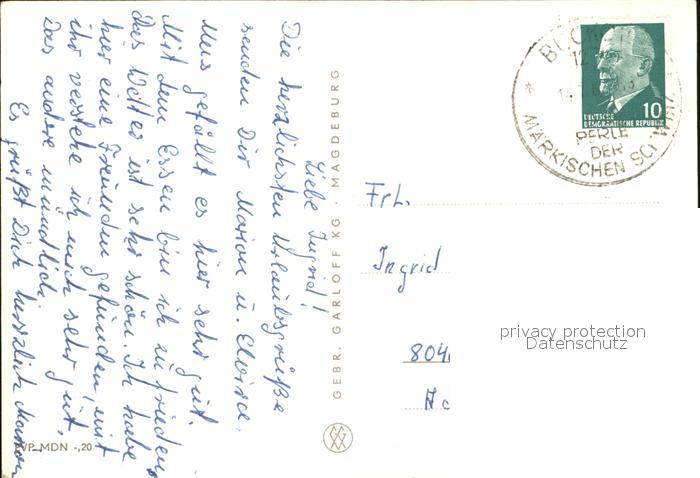 Liebe Ingrid!
Die herzlichsten Urlaubsgrüße
senden Dir Marion u.
Mir gefällt es hier sehr gut.
Mit dem Essen bin ich zufrieden
das Wetter ist sehr schön. Ich habe
hier eine Freundin gefunden, mit
ihr verstehe ich mich sehr gut.
Das andere mündlich.
Es grüßt Dich herzlich Marion
EVP MDN -,20
GEBR. GARLOFF KG · MAGDEBURG
DEUTSCHE
DEMOKRATISCHE REPUBLIK
10
PERLE
DER
MÄRKISCHEN SCHWEIZ
Frl.
Ingrid
804
privacy protection
Datenschutz